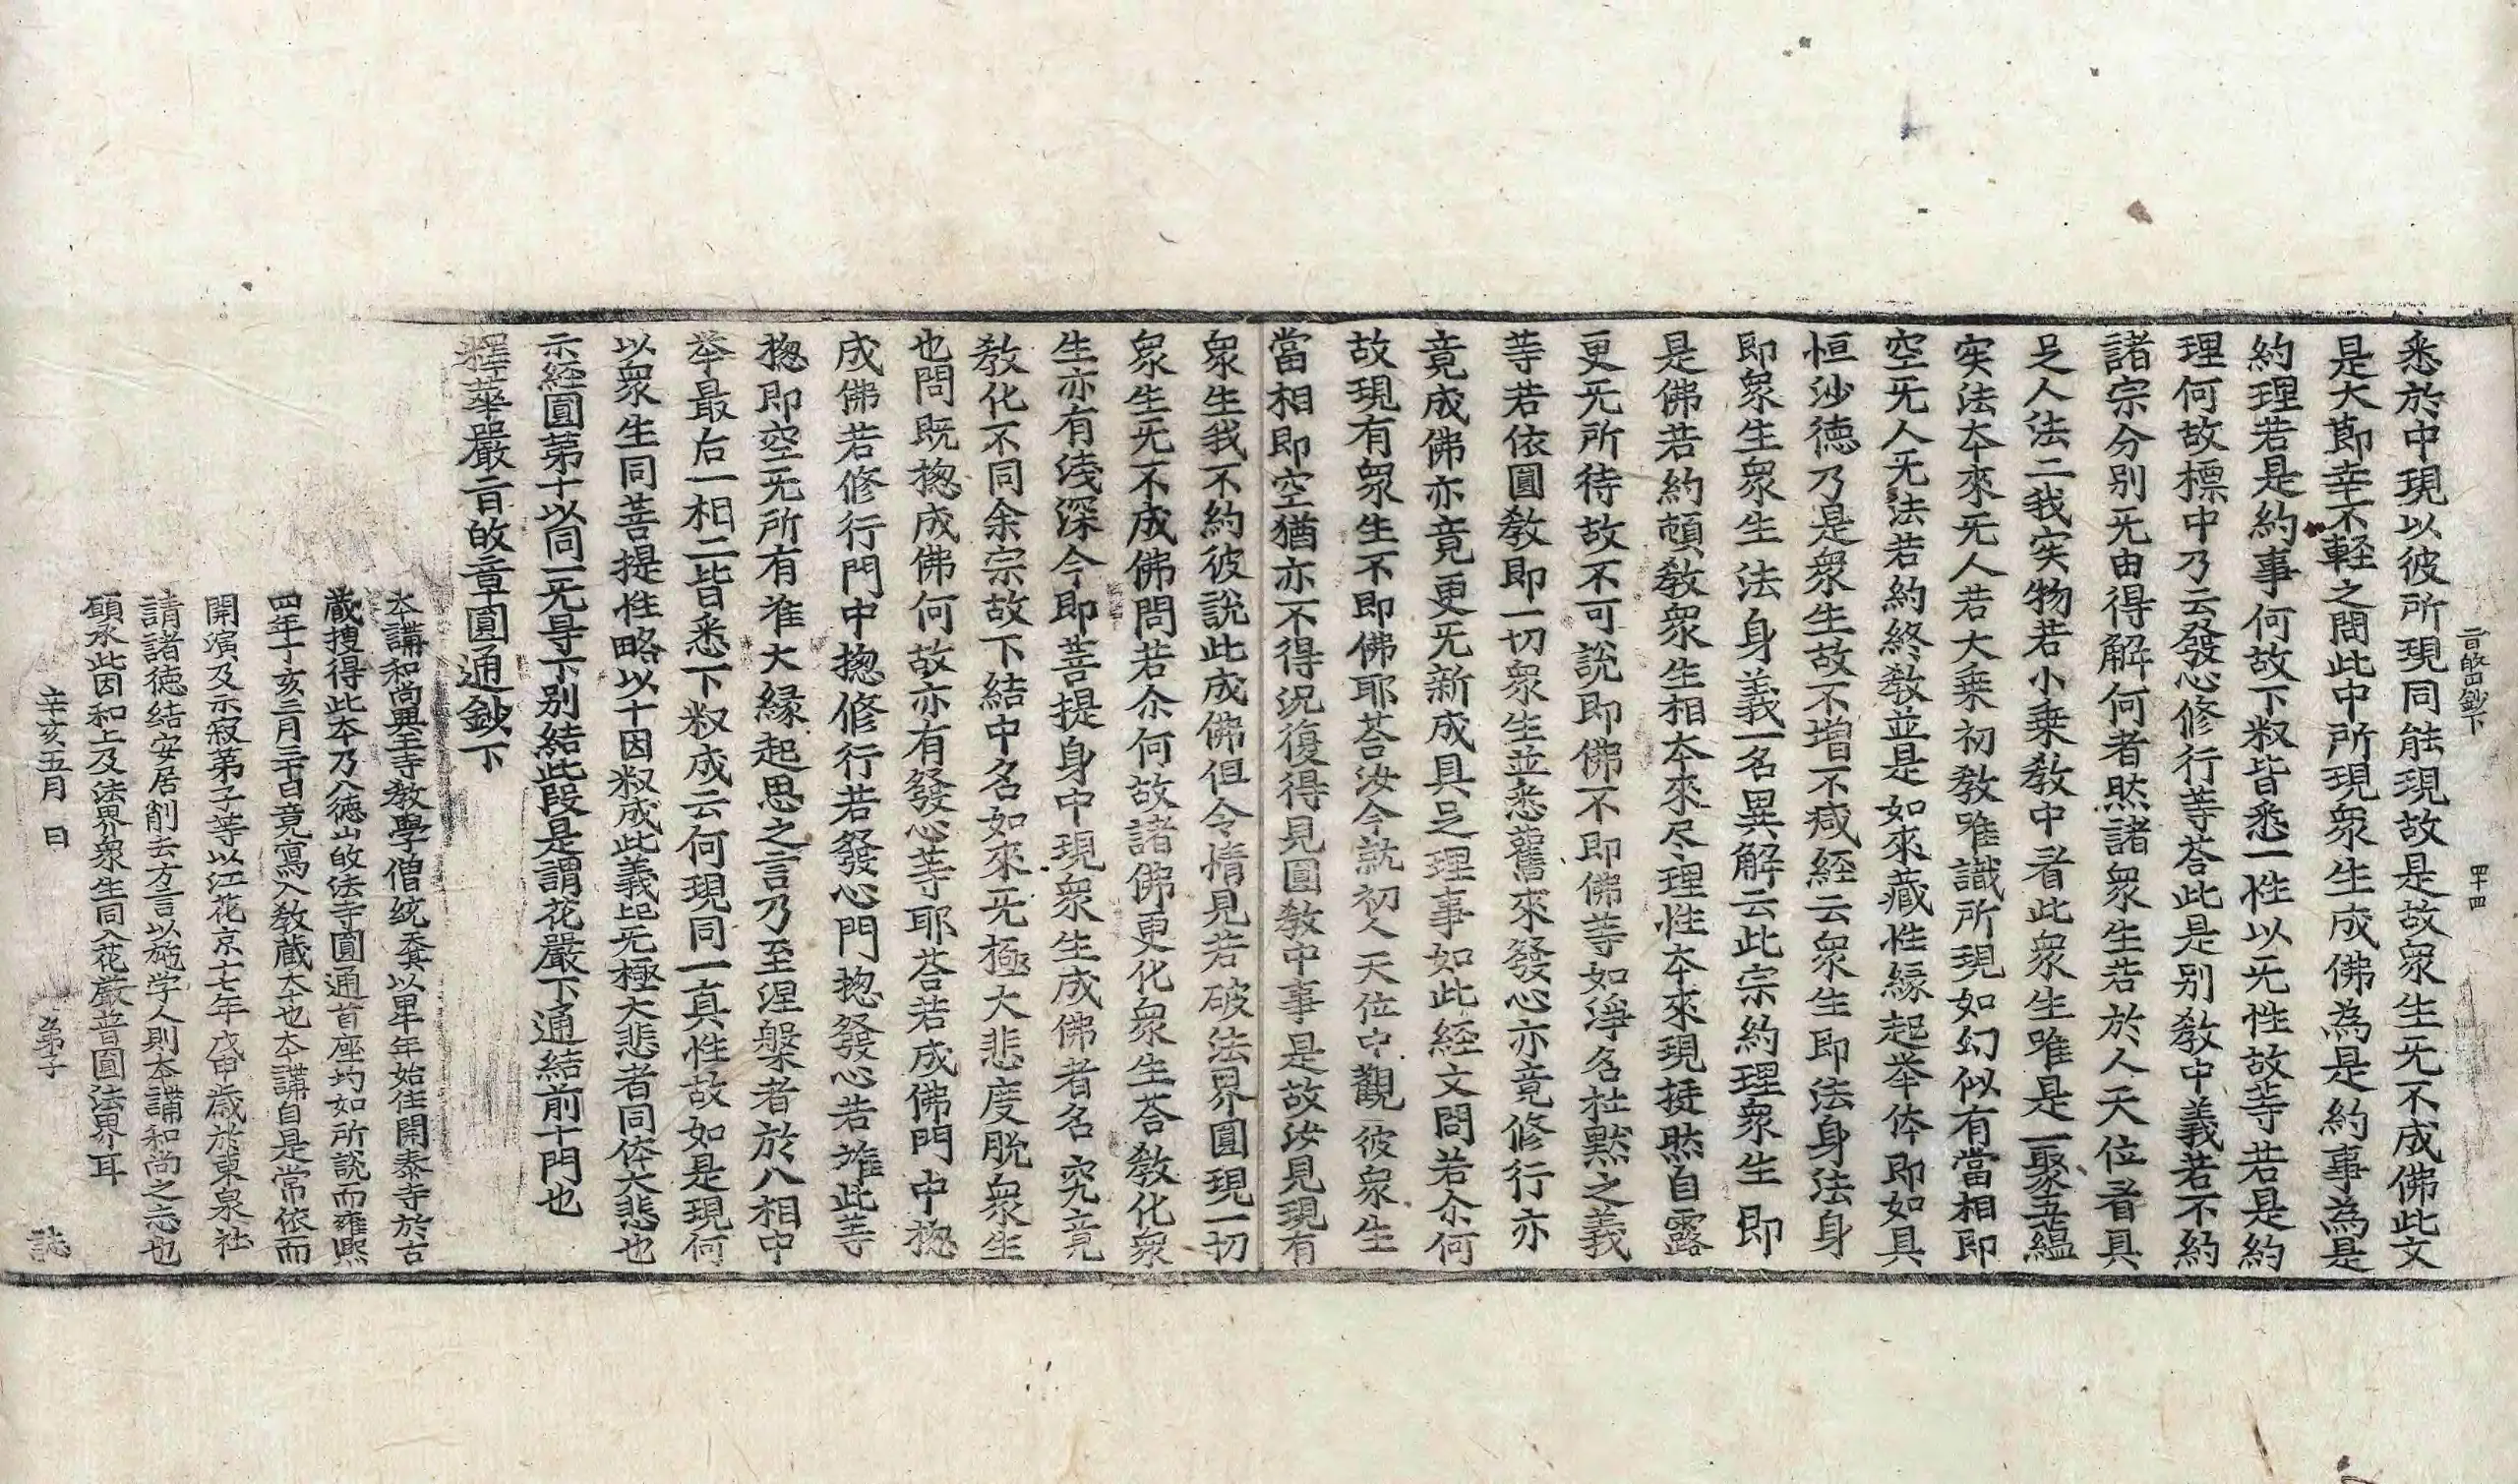 旨皈鈔下 四十四
悉於中現以彼所現同能現故是故衆生旡不成佛此文
是大節幸不輕之問此中所現衆生成佛為是約事為是
約理若是約事何故下釈皆悉一性以旡性故等若是約
理何故標中乃云發心修行等荅此是别教中義若不約
諸宗分别旡由得解何者然諸衆生若於人天位看具
足人法二我实物若小乗教中看此衆生唯是一聚五蕴
实法夲來旡人若大乗初教唯識所現如幻似有當相即
空旡人旡法若約終教並是如來藏性縁起举体即如具
恒沙德乃是衆生故不增不减経云衆生即法身法身
即衆生衆生法身義一名異解云此宗約理衆生即
是佛若約頓教衆生相夲來尽理性夲來現挺然自露
更旡所待故不可說即佛不即佛等如淨名杜黙之義
等若依圓教即一切衆生並悉舊來發心亦竟修行亦
竟成佛亦竟更旡新成具足理事如此経文問若尒何
故現有衆生不即佛耶荅汝今就初人天位中觀彼衆生
當相即空猶亦不得況復得見圓教中事是故汝見現有
衆生我不約彼說此成佛但令情見若破法界圓現一切
衆生旡不成佛問若尒何故諸佛更化衆生荅教化衆
生亦有浅深今即菩提身中現衆生成佛者名究竟
教化不同余宗故下結中名如來旡極大悲度脱衆生
也問既揔成佛何故亦有發心等耶荅若成佛門中揔
成佛若修行門中揔修行若發心門揔發心若准此等
揔即空旡所有准大縁起思之言乃至涅槃者於八相中
举最后一相二皆悉下釈成云何現同一真性故如是現何
以衆生同菩提性略以十因釈成此義起旡極大悲者同体大悲也
示経圓第十以同一旡㝵下别結此段是謂花嚴下通結前十門也
釋華嚴旨皈章圓通鈔下
夲講和尚興王寺教學僧統天其以甲午年始住開泰寺於古
蔵捜得此夲乃人德山皈法寺圓通首座均如所說而雍熙
四年丁亥三月三十日竟寫入教蔵夲也夲講自是常依而
開演及示寂第子等以江花京十七年戊申歳於東泉社
請諸徳結安居削去方言以施学人則夲講和尚之志也
願承此因和上及法界衆生同入花嚴普圓法界耳
辛亥五月 日 第子 誌